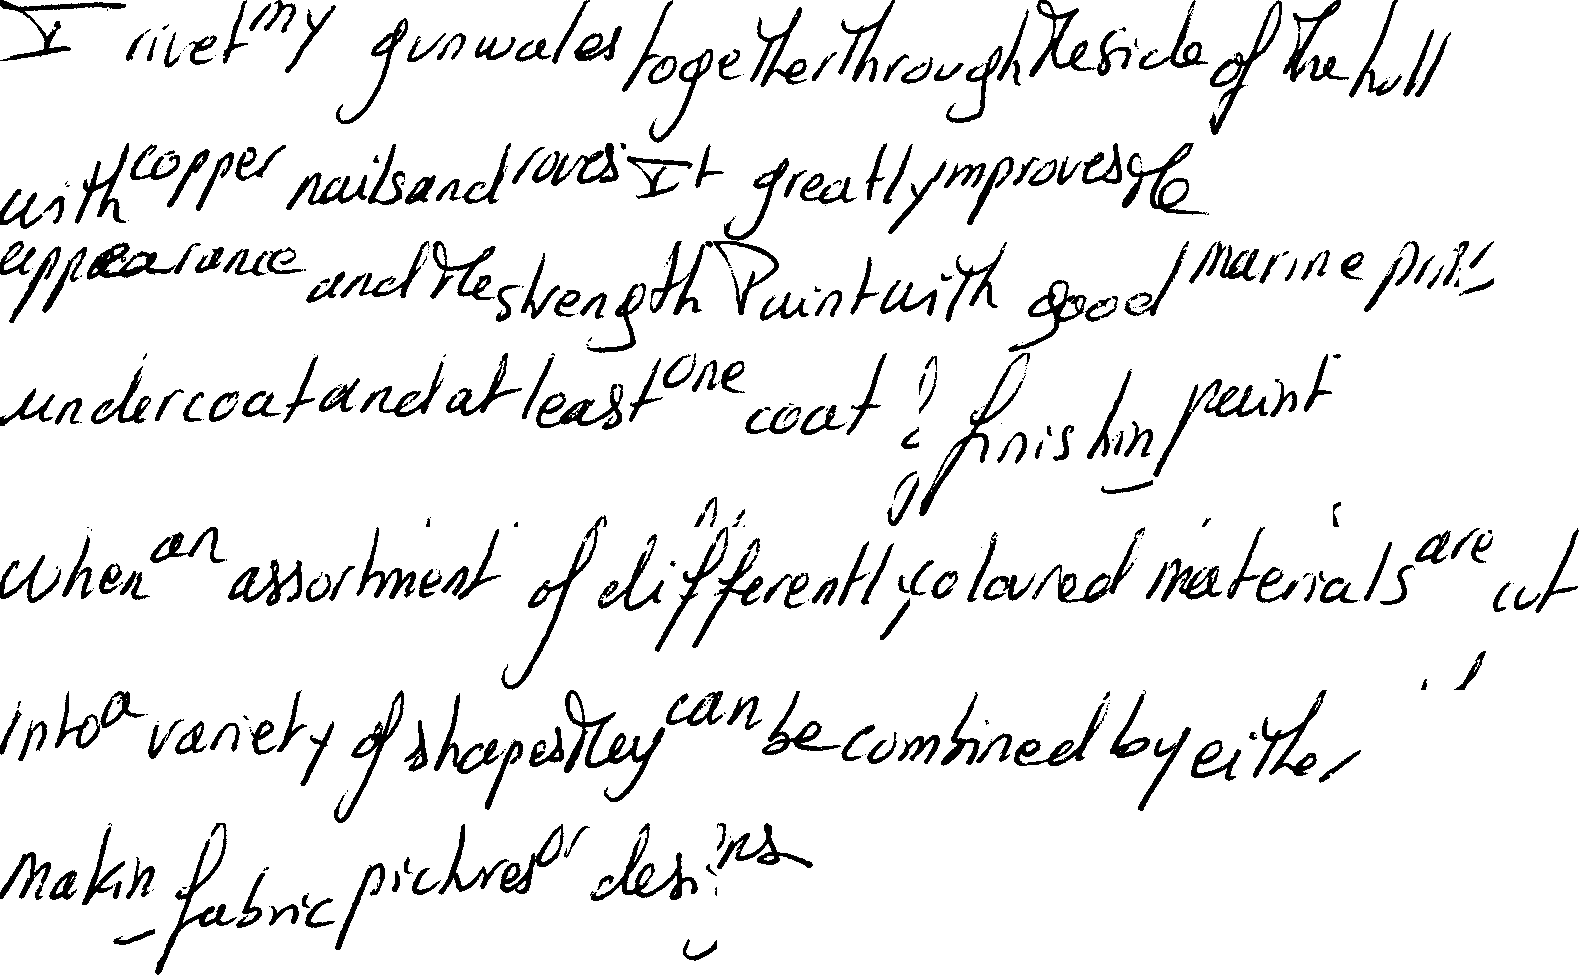 I rivet my gunwales together through the side of the hull
with copper nails and roves It greatly improves the
appearance and the strength Paint with good marine
undercoat and at least one coat of finishing paint
When an assortment of differently coloured materials are cut
into a variety of shapes they can be combined by either
making fabric pictures or designs